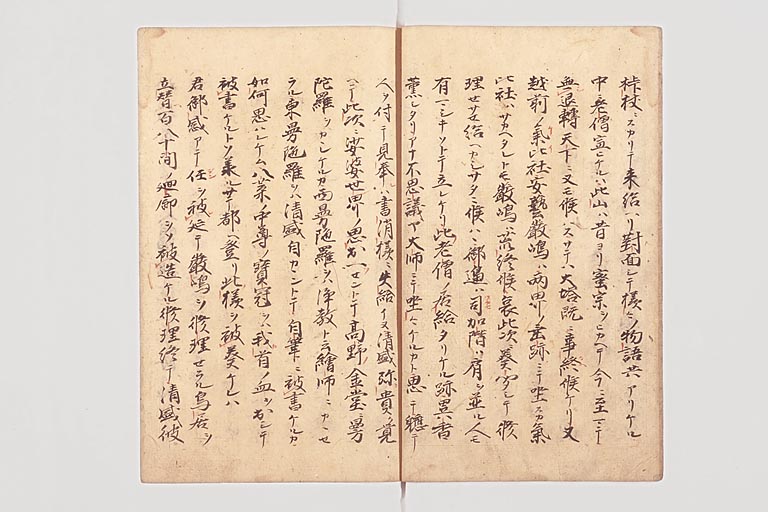 桙杖ニスカリテ来給ヘリ對面シテ様々ニ物語共アリケル
中ニ老僧宣ヒケルハ此山ハ昔ヨリ蜜宗ヲヒカヘテ今ニ至ルマテ
無退轉天下ニ又モ候ハスサテハ大塔既ニ事終候ケリ又
越前ノ氣比社安藝嚴嶋ハ両界ノ垂跡ニテ坐スカ氣
比社ハサカヘタレトモ嚴嶋ハ荒終候哀此次ニ奏聞シテ修
理セサセ給ヘカシサタニ候ハヽ御邊ハ司加階ハ肩ヲ並ル人モ
有マシキソトテ立レケリ此老僧ノ居給タリケル跡異香
薫シタリアナ不思議ア大師ニテ坐シケルカト思テ聽テ
人ヲ付テ見奉ハ書消様ニ失給イヌ清盛弥貴覚
ヘテ此次ニ娑婆世界ノ思出ヘセントテ高野金堂ニ曼
陀羅ヲカヽレケルカ西曼陀羅ヲハ淨教ト云繪師ニカヽセ
ラル東曼陀羅ヲハ清盛自カヽントテ自筆ニ被書ケルカ
如何思ハレケム八葉ノ中尊ノ寶冠ヲハ我首ノ血ヲ出シテ
被書ケルトソ承ルサテ都ヘ登リ此様ヲ被奏ケレハ
君御感アテ任ヲ被延テ嚴嶋ヲ修理セラル鳥居ヲ
立替百八十間ノ廻廊ヲソ被造ケル修理終テ清盛彼